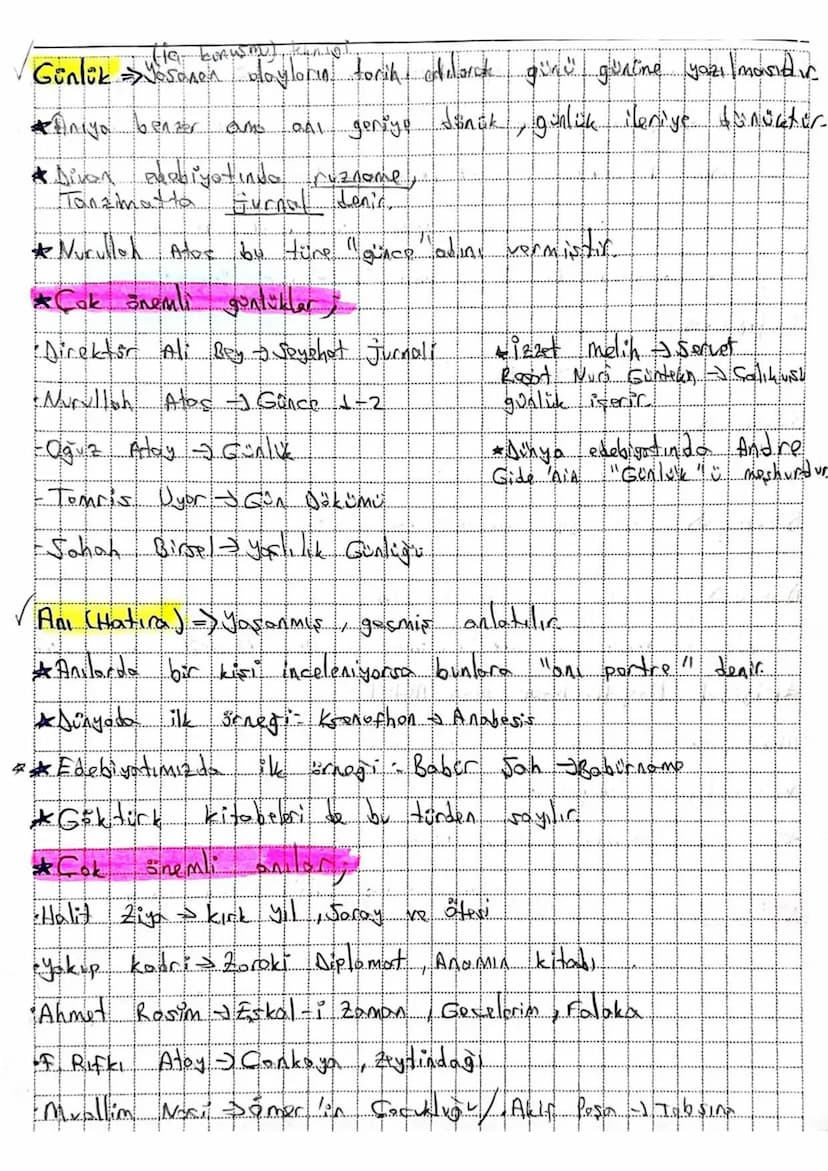 (iç konuşma)
Günlük => Yaşanan olayların tarih atılarak günü gününe yazılmasıdır.
★Anıya benzer ama anı geriye dönük, günlük ileriye dönüktür.
★ Divan edebiyatında ruzname,
Tanzimatta jurnal denir.
★ Nurullah Ataç bu türe "günce" adını vermiştir.
★Çok önemli günlükler;
·Direktör Ali Bey → Seyahat Jurnali
·Nurullah Ataç → Günce 1-2
-Oğuz Atay → Günlük
-Tomris Uyar → Gün Dökümü
-Salah Birsel → Yaşlılık Günlüğü
★İzzet Melih → Sermet
Reşat Nuri Güntekin → Çalıkuşu
günlük içerir.
★Dünya edebiyatında Andre
Gide'nin "Günlük"ü meşhurdur.
Anı (Hatıra) => Yaşanmış, geçmiş anlatılır.
★Anılarda bir kişi inceleniyorsa bunlara "anı portre" denir.
★Dünyada ilk örneği: Ksenophon → Anabasis
★Edebiyatımızda ilk örneği: Babür Şah → Babürname
★Göktürk kitabeleri de bu türden sayılır.
★Çok önemli anılar;
·Halit Ziya → Kırk Yıl, Saray ve Ötesi
·Yakup Kadri → Zoraki Diplomat, Anamın Kitabı
·Ahmet Rasim → Eşkal-i Zaman, Gecelerim, Falaka
·F. Rıfkı Atay → Çankaya, Zeytindağı
·Muallim Naci → Ömer'in Çocukluğu / Akif Paşa → Tabsıra